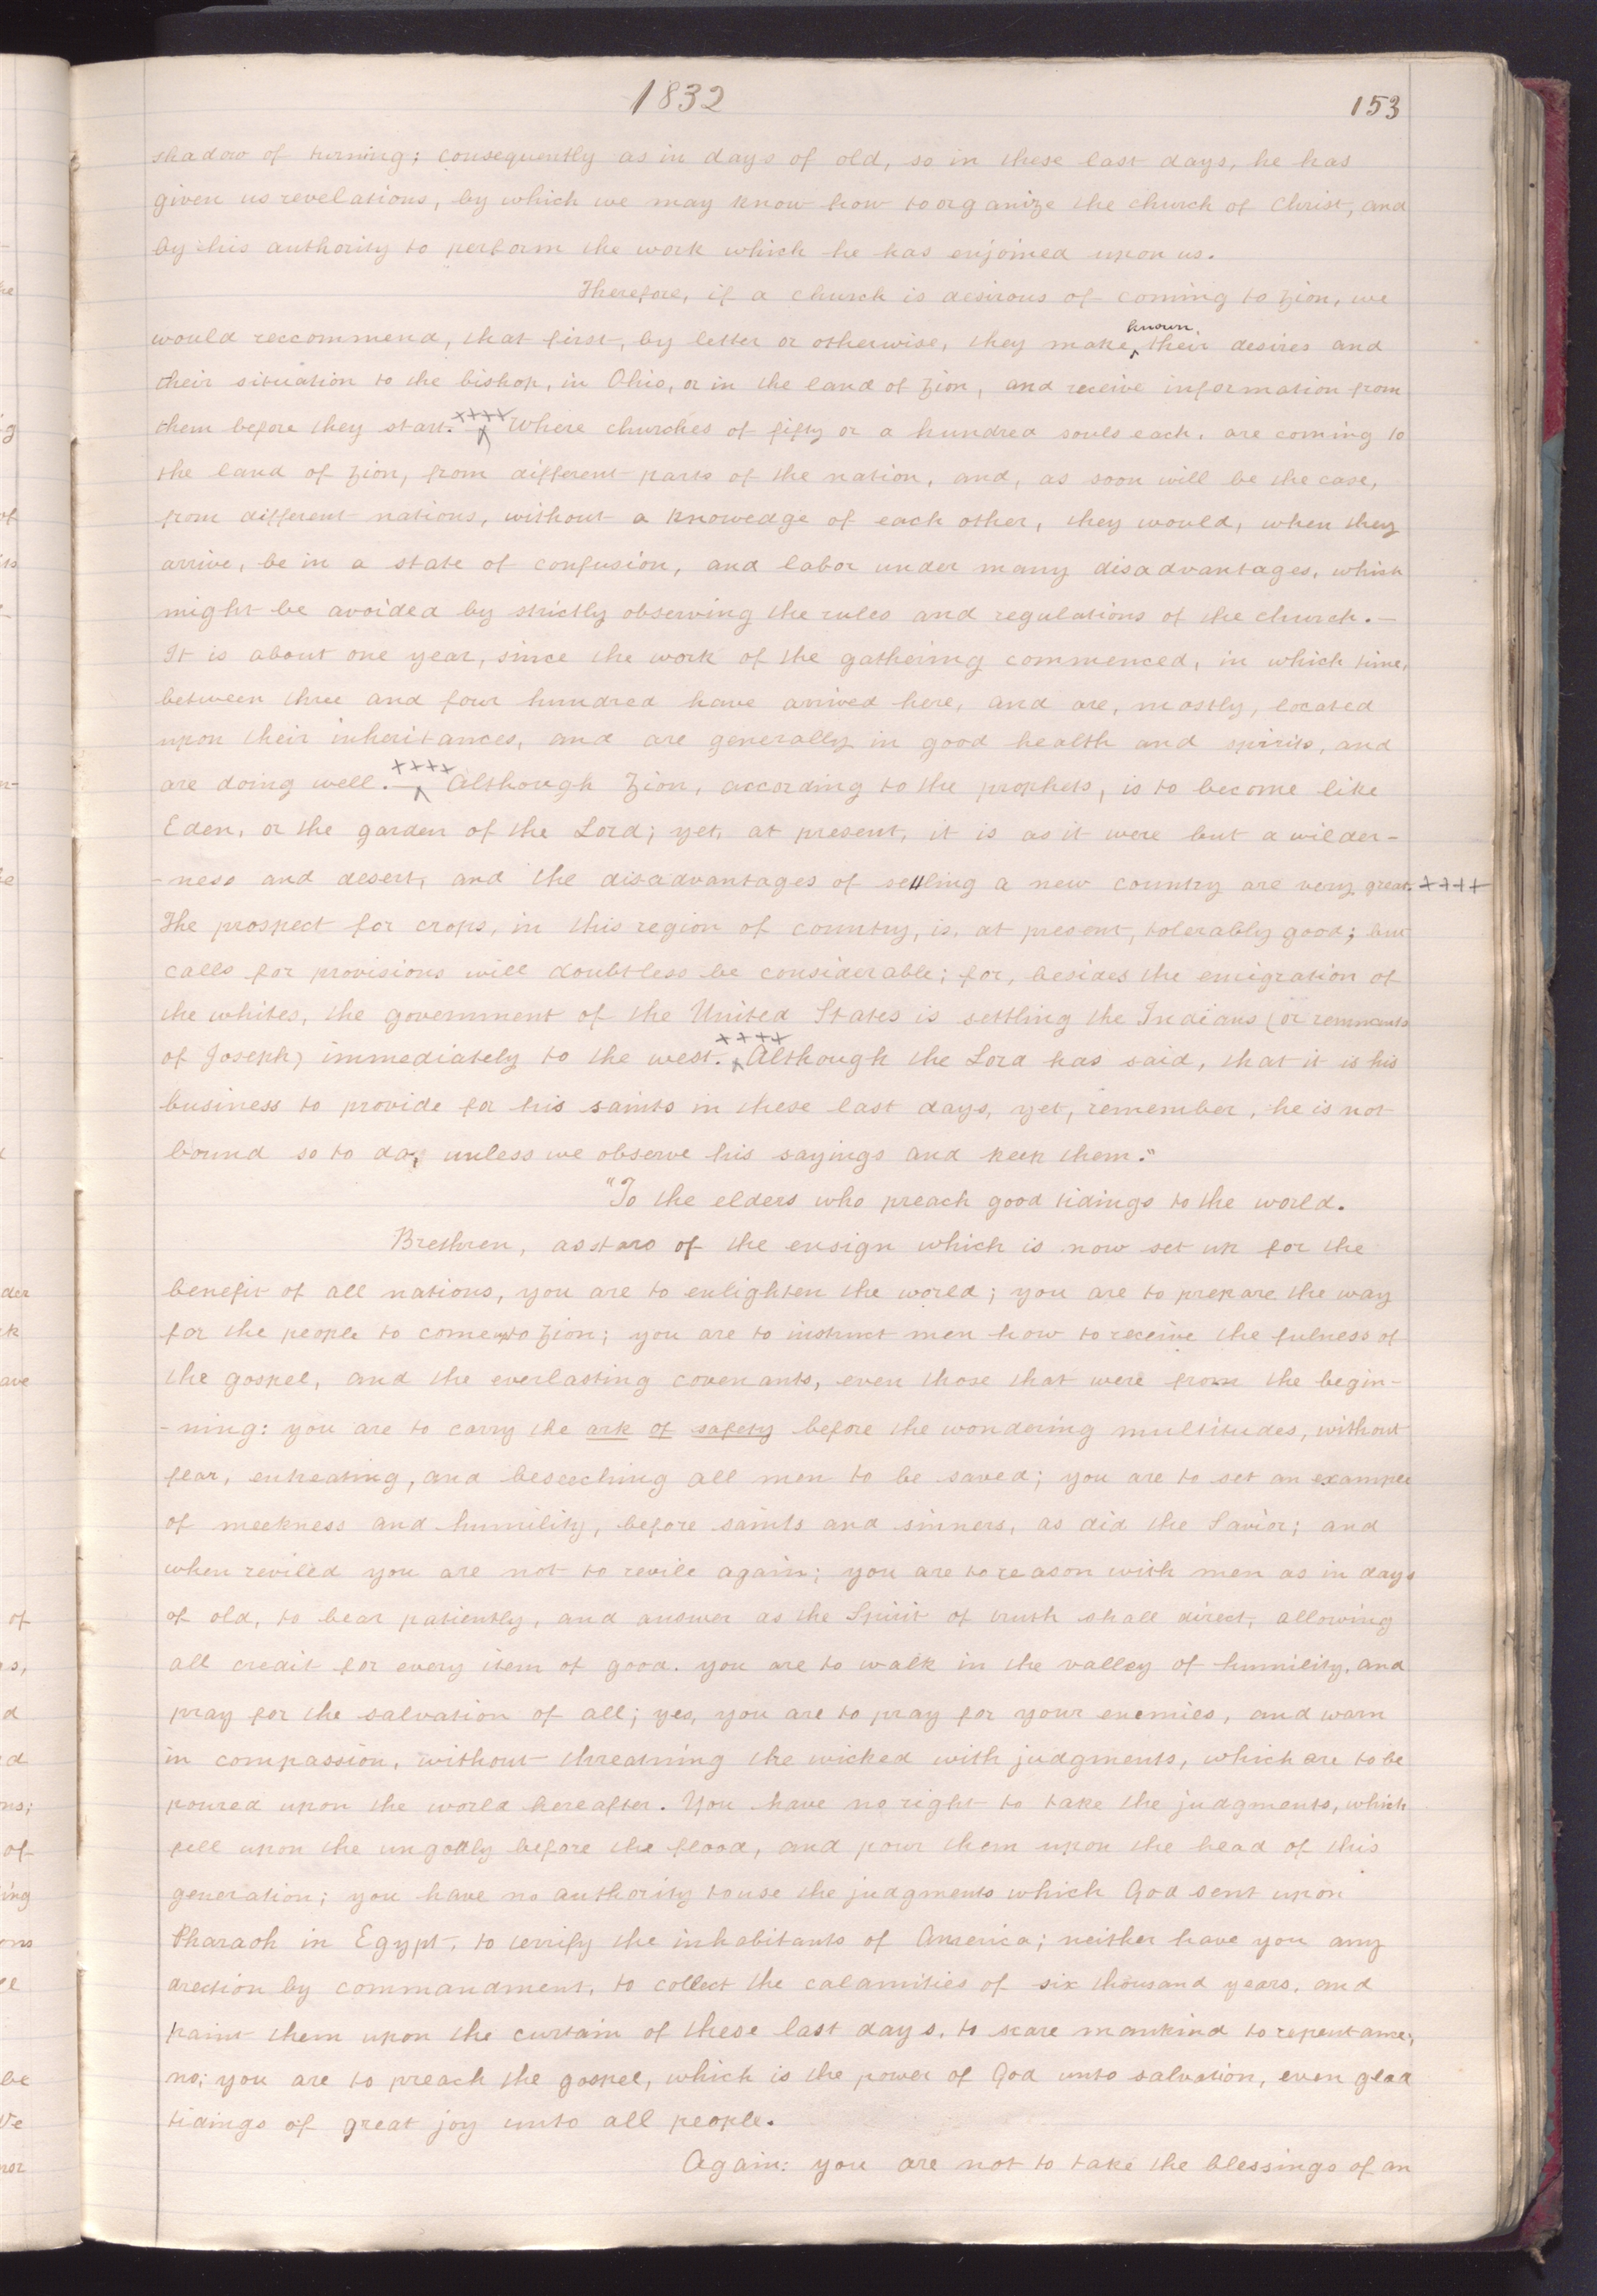 1832
153
shadow of turning; consequently as in days of old, so in these last days, he has
given us revelations, by which we may know how to organize the church of Christ, and
by his authority to perform the work which he has enjoined upon us.
Therefore, if a church is desirous of coming to Zion, we
would reccommend, that first, by letter or otherwise, they make ^known^ their desires and
their situation to the bishop, in Ohio, or in the land of Zion, and receive information from
them before they start.— ^++++^ Where churches of fifty or a hundred souls each, are coming to
the land of Zion, from different parts of the nation, and, as soon will be the case,
from different nations, without a knowedge of each other, they would, when they
arrive, be in a state of confusion, and labor under many disadvantages, which
might be avoided by strictly observing the rules and regulations of the church.—
It is about one year, since the work of the gathering commenced, in which time,
between three and four hundred have arrived here, and are, mostly, located
upon their inheritances, and are generally in good health and spirits, and
are doing well.— ^++++^ Although Zion, according to the prophets, is to become like
Eden, or the garden of the Lord; yet, at present, it is as it were but a wilder-
-ness and desert, and the disadvantages of settling a new country are very great. ++++
The prospect for crops, in this region of country, is, at present, tolerably good; but
calls for provisions will doubtless be considerable; for, besides the emigration of
the whites, the government of the United States is settling the Indians (or remnants
of Joseph) immediately to the west. ^++++^ Although the Lord has said, that it is his
business to provide for his saints in these last days, yet, remember, he is not
bound so to do, unless we observe his sayings and keep them."
"To the elders who preach good tidings to the world.
Brethren, as stars of the ensign which is now set up for the
benefit of all nations, you are to enlighten the world; you are to prepare the way
for the people to come up to Zion; you are to instruct men how to receive the fulness of
the gospel, and the everlasting covenants, even those that were from the begin-
-ning: you are to carry the ark of safety before the wondering multitudes, without
fear, entreating, and beseeching all men to be saved; you are to set an example
of meekness and humility, before saints and sinners, as did the Savior; and
when reviled you are not to revile again; you are to reason with men as in days
of old, to bear patiently, and answer as the Spirit of truth shall direct, allowing
all credit for every item of good. you are to walk in the valley of humility, and
pray for the salvation of all; yes, you are to pray for your enemies, and warn
in compassion, without threatning the wicked with judgments, which are to be
poured upon the world hereafter. You have no right to take the judgments, which
fell upon the ungodly before the flood, and pour them upon the head of this
generation; you have no authority to use the judgments which God sent upon
Pharaoh in Egypt, to terrify the inhabitants of America; neither have you any
drection by commandment, to collect the calamities of six thousand years, and
paint them upon the curtain of these last days, to scare mankind to repentance;
no; you are to preach the gospel, which is the power of God unto salvation, even glad
tidings of great joy unto all people.
Again: you are not to take the blessings of an